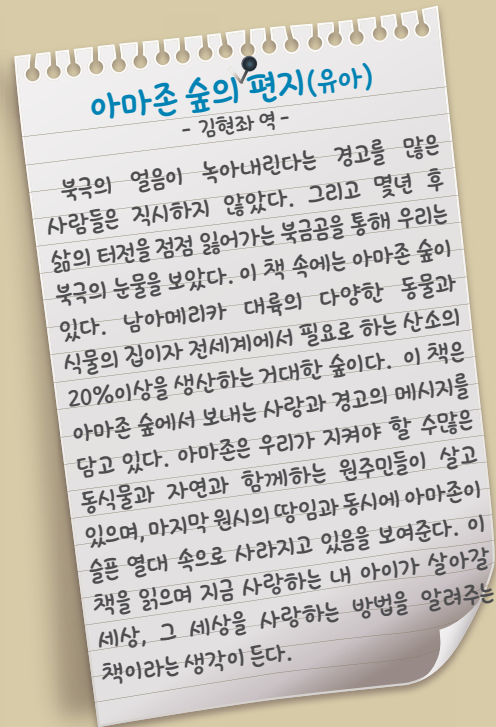 아마존 숲의 편지(유아)
- 김현좌 역 -
북극의 얼음이 녹아내린다는 경고를 많은
사람들은 직시하지 않았다. 그리고 몇년 후
삶의 터전을 점점 잃어가는 북금곰을 통해 우리는
북극의 눈물을 보았다. 이 책 속에는 아마존 숲이
있다. 남아메리카 대륙의 다양한 동물과
식물의 집이자 전세계에서 필요로 하는 산소의
20%이상을 생산하는 거대한 숲이다. 이 책은
아마존 숲에서 보내는 사랑과 경고의 메시지를
담고 있다. 아마존은 우리가 지켜야 할 수많은
동식물과 자연과 함께하는 원주민들이 살고
있으며, 마지막 원시의 땅임과 동시에 아마존이
슬픈 열대 속으로 사라지고 있음을 보여준다. 이
책을 읽으며 지금 사랑하는 내 아이가 살아갈
세상, 그 세상을 사랑하는 방법을 알려주는
책이라는 생각이 든다.